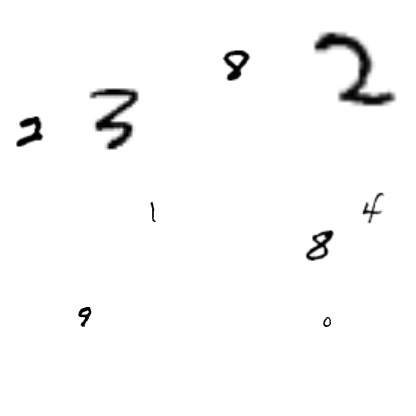 8 2
2 3
1 4
8
9 0